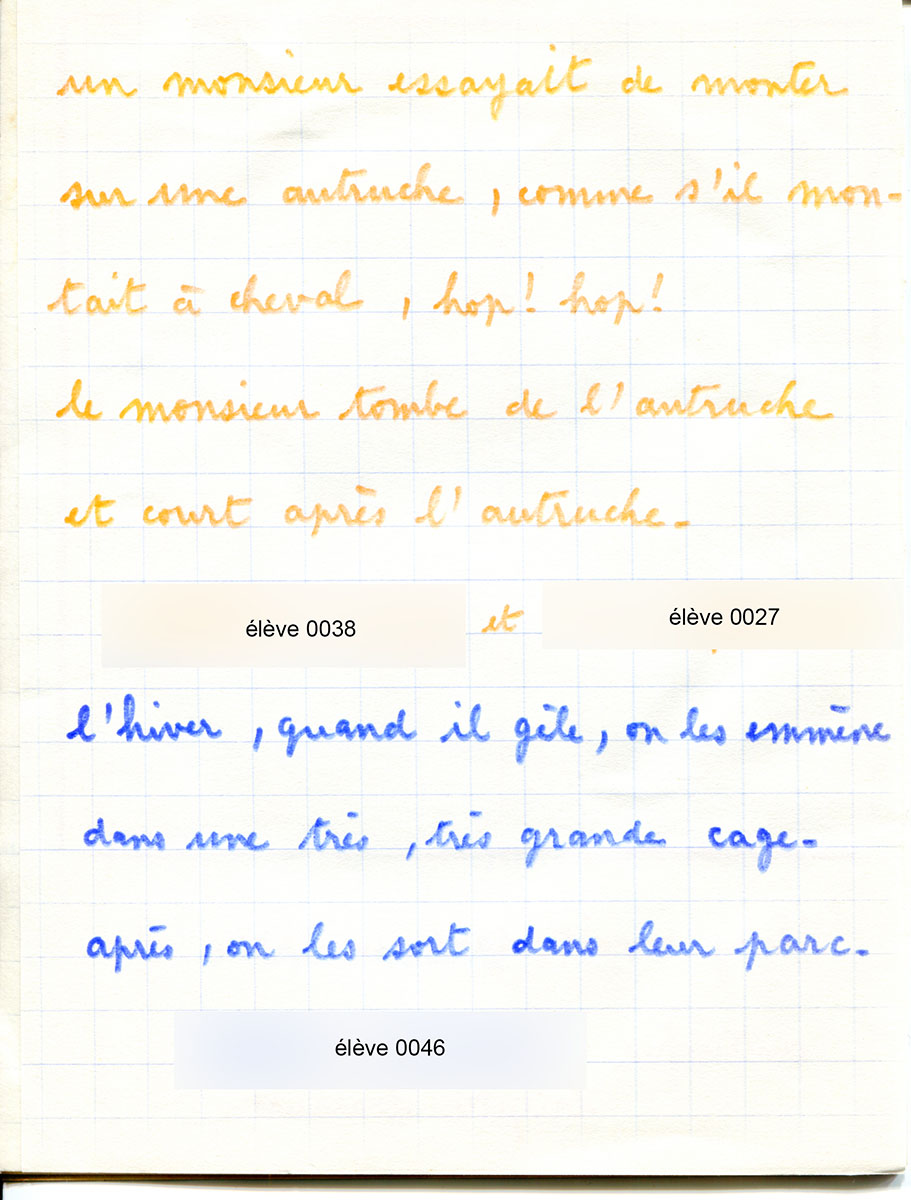 un monsieur essayait de monter
sur une autruche, comme s'il mon-
tait à cheval, hop! hop!
le monsieur tombe de l'autruche
et court après l'autruche.
élève 0038 et élève 0027
l'hiver, quand il gèle, on les emmène
dans une très, très grande cage.
après, on les sort dans leur parc.
élève 0046